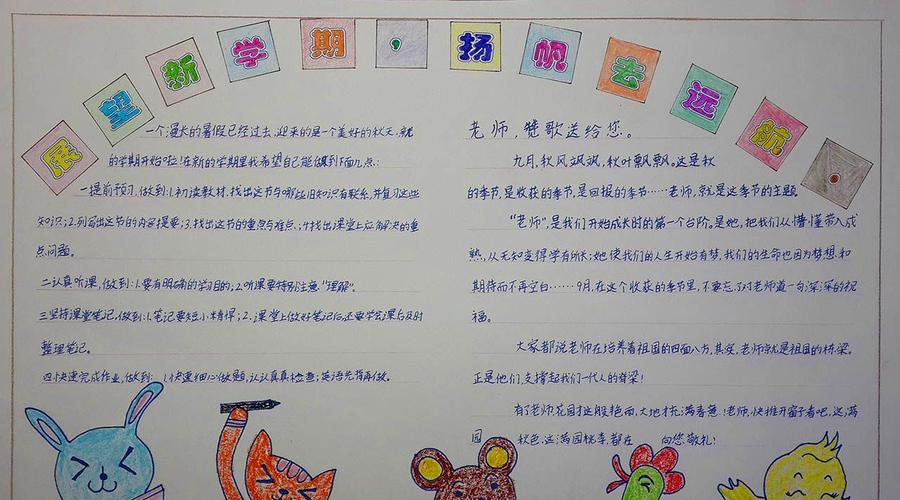 展望新学期，扬帆去远航.
一个漫长的暑假已经过去,迎来的是一个美好的秋天,新
的学期开始啦!在新的学期里我希望自己能做到下面几点:
一提前预习,做到:1.初读教材,找出这节与哪些旧知识有联系,并复习这些
知识;2.列写出这节的内容提要;3.找出这节的重点与难点;4.找出课堂上应解决的重
点问题。
二认真听课,做到:1.要有明确的学习目的;2.听课要特别注意“理解”。
三坚持课堂笔记,做到:1.笔记要短小精悍;2.课堂上做好笔记后还要学会课后及时
整理笔记。
四快速完成作业,做到: 1.快速细心做题,认认真真检查;英语先背再做。
老师,赞歌送给您。
九月,秋风飒飒,秋叶飘飘。这是秋
的季节,是收获的季节,是回报的季节……老师,就是这季节的主题。
“老师”,是我们开始成长时的第一个台阶。是她,把我们从懵懂带入成
熟,从无知变得学有所长;她使我们的人生开始有梦,我们的生命也因为梦想和
期待而不再空白……9月,在这个收获的季节里,不要忘了对老师道一句深深的祝
福。
大家都说老师在培养着祖国的四面八方,其实,老师就是祖国的桥梁。
正是他们,支撑起我们一代人的脊梁!
有了老师,花园才这般艳丽,大地才充满春意!老师,快推开窗子看吧,这满
园 秋色,这满园桃李都在 向您敬礼!